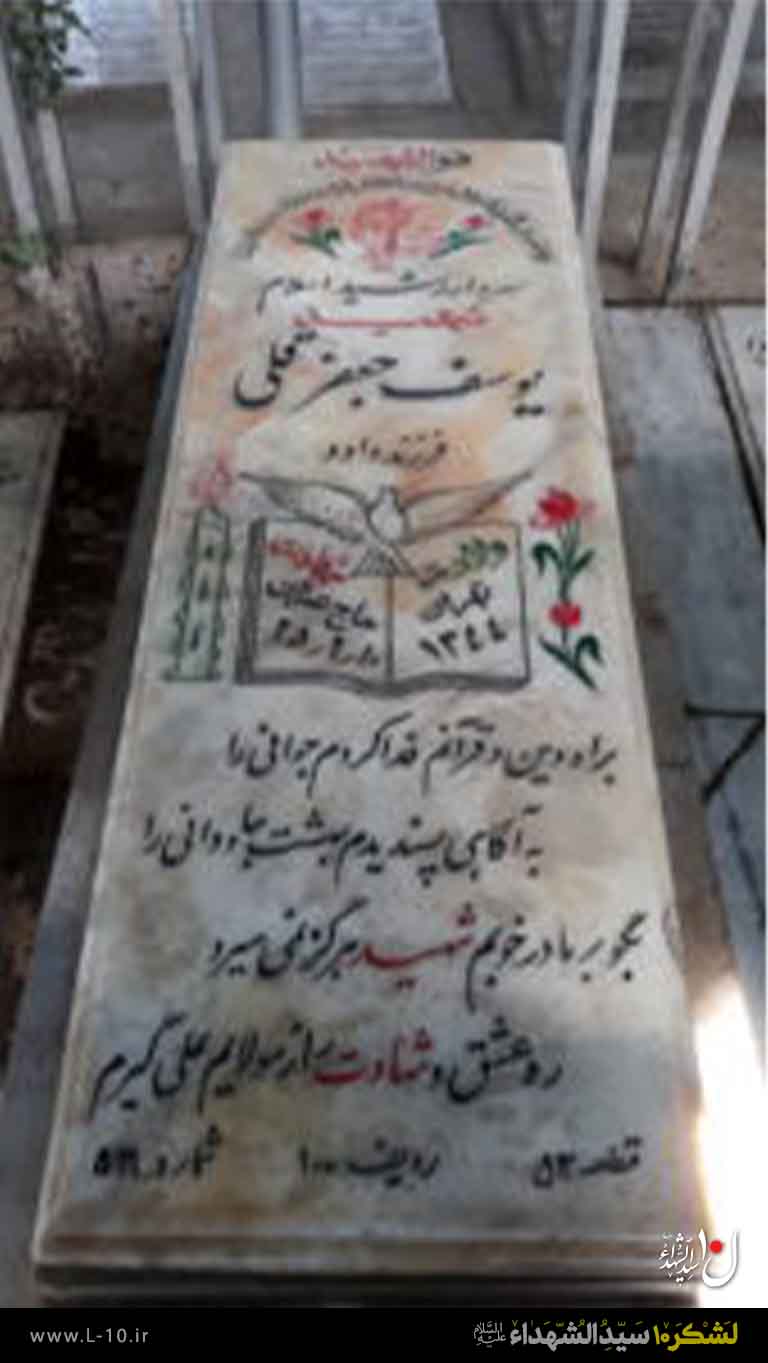 هوالشهید
سردار رشید اسلام
شهید
یوسف جعفر قلی
فرزند داود
ولادت
تهران
۱۳۴۴
شهادت
حاج عمران
براه دین و قرآنم فدا کردم جوانی را
به آگاهی پسندیدم بهشت جاودانی را
بگو بر مادر خوبم شهید هرگز نمی میرد
ره عشق و شهادت را از مولایم علی گیرم
قطعه ۵۳ ردیف ۱۰۰ شماره
ل۱۰ سیدالشهداء
www.L-10.ir
لشکر۱۰ سیدالشهداء علیه‌السلام